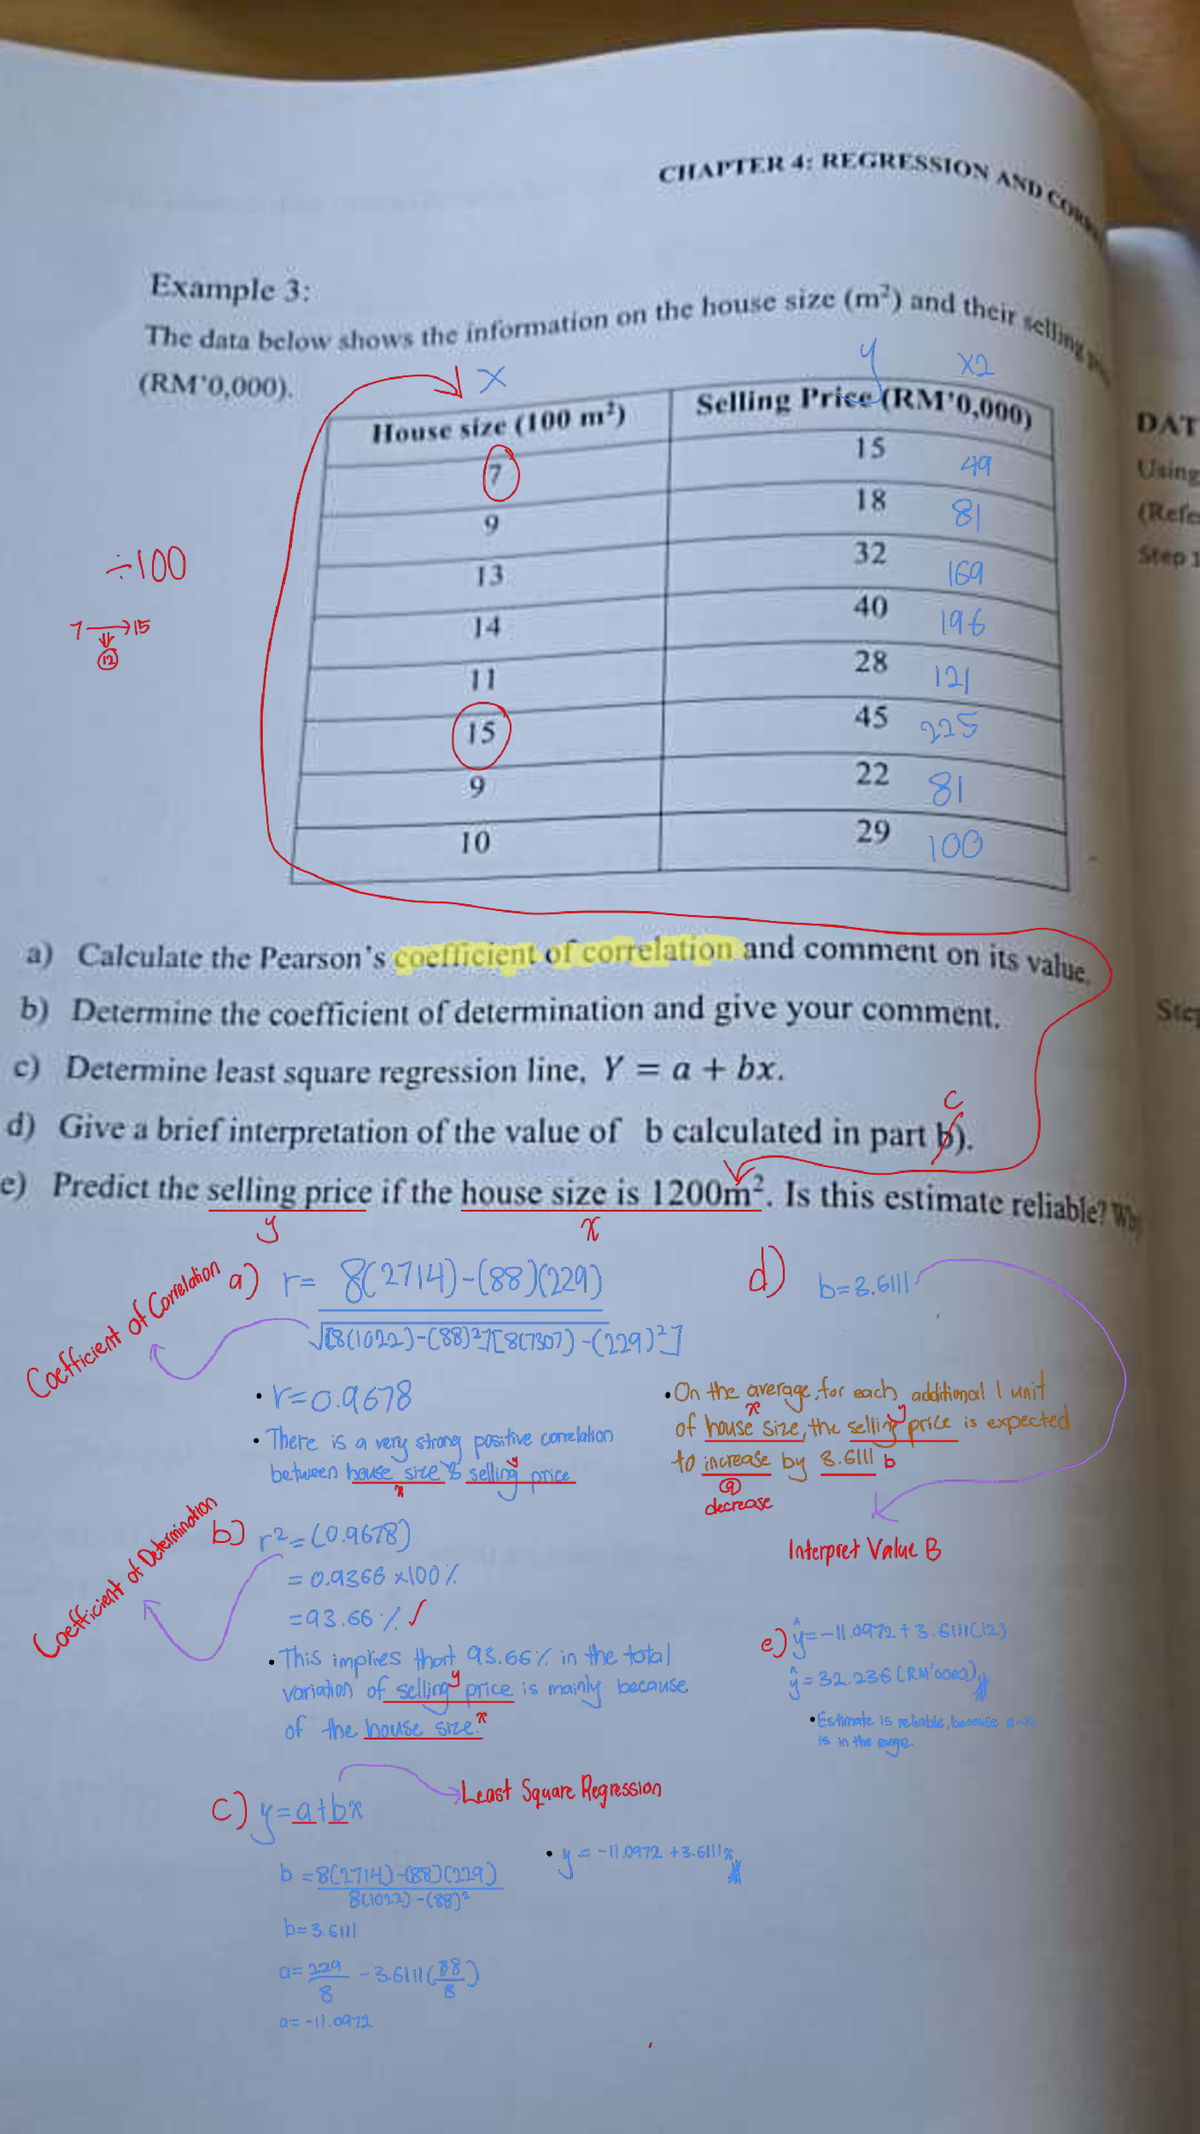 CHAPTER 4: REGRESSION AND
Example 3:
The data below shows the information on the house size (m²) and their selling
(RM'0,000).
x y x2
House size (100 m²) Selling Price (RM'0,000)
7 15 49
9 18 81
13 32 169
14 40 196
11 28 121
15 45 225
9 22 81
10 29 100
÷100
7 → 15
⇓
12
DAT
Using
Step 1
a) Calculate the Pearson's coefficient of correlation and comment on its value.
b) Determine the coefficient of determination and give your comment.
c) Determine least square regression line, Y = a + bx.
c
d) Give a brief interpretation of the value of b calculated in part b).
e) Predict the selling price if the house size is 1200m². Is this estimate reliable?
y x
Coefficient of Correlation
a) r= 8(2714)-(88)(229)
√[8(1022)-(88)²][8(7307)-(229)²]
• r=0.9678
• There is a very strong positive correlation
between house size & selling price
x y
Coefficient of Determination
b) r²=(0.9678)
= 0.9366 ×100%
=93.66% ✓
• This implies that 93.66% in the total
variation of selling price is mainly because
y
of the house size. x
c) y=a+bx
Least Square Regression
b =8(2714)-(88)(229)
8(1022)-(88)²
b=3.6111
a= 229 - 3.6111(88)
8 8
a= -11.0972
• y = -11.0972 +3.6111x
d) b=3.6111
• On the average, for each additional 1 unit
x y
of house size, the selling price is expected
to increase by 3.6111 b
@
decrease
Interpret Value B
e) ŷ=-11.0972+3.6111(12)
ŷ=32.236 (RM'0000)
• Estimate is reliable, because
is in the range.